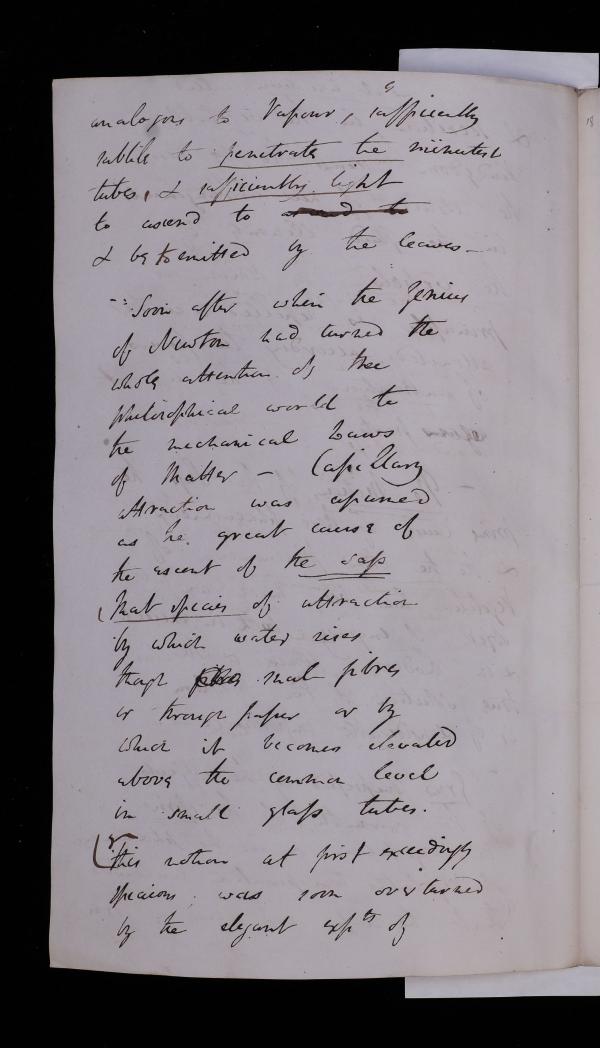 analogous to Vapour, sufficiently
subtile to penetrate the minutest
tubes, & sufficiently light
to ascend to and to
& be emitted by the leaves –
– Soon after when the genius
of Newton had turned the
whole attention of the
philosophical world to
the mechanical Laws
of Matter – Capillary
attraction was assumed
as the great cause of
the ascent of the sap
that species of attraction
by which water rises
though small fibres
or through paper or by
which it becomes elevated
above the common level
in small glass tubes.
This notion at first exceedingly
specious was soon overturned
by the elegant expts of
18